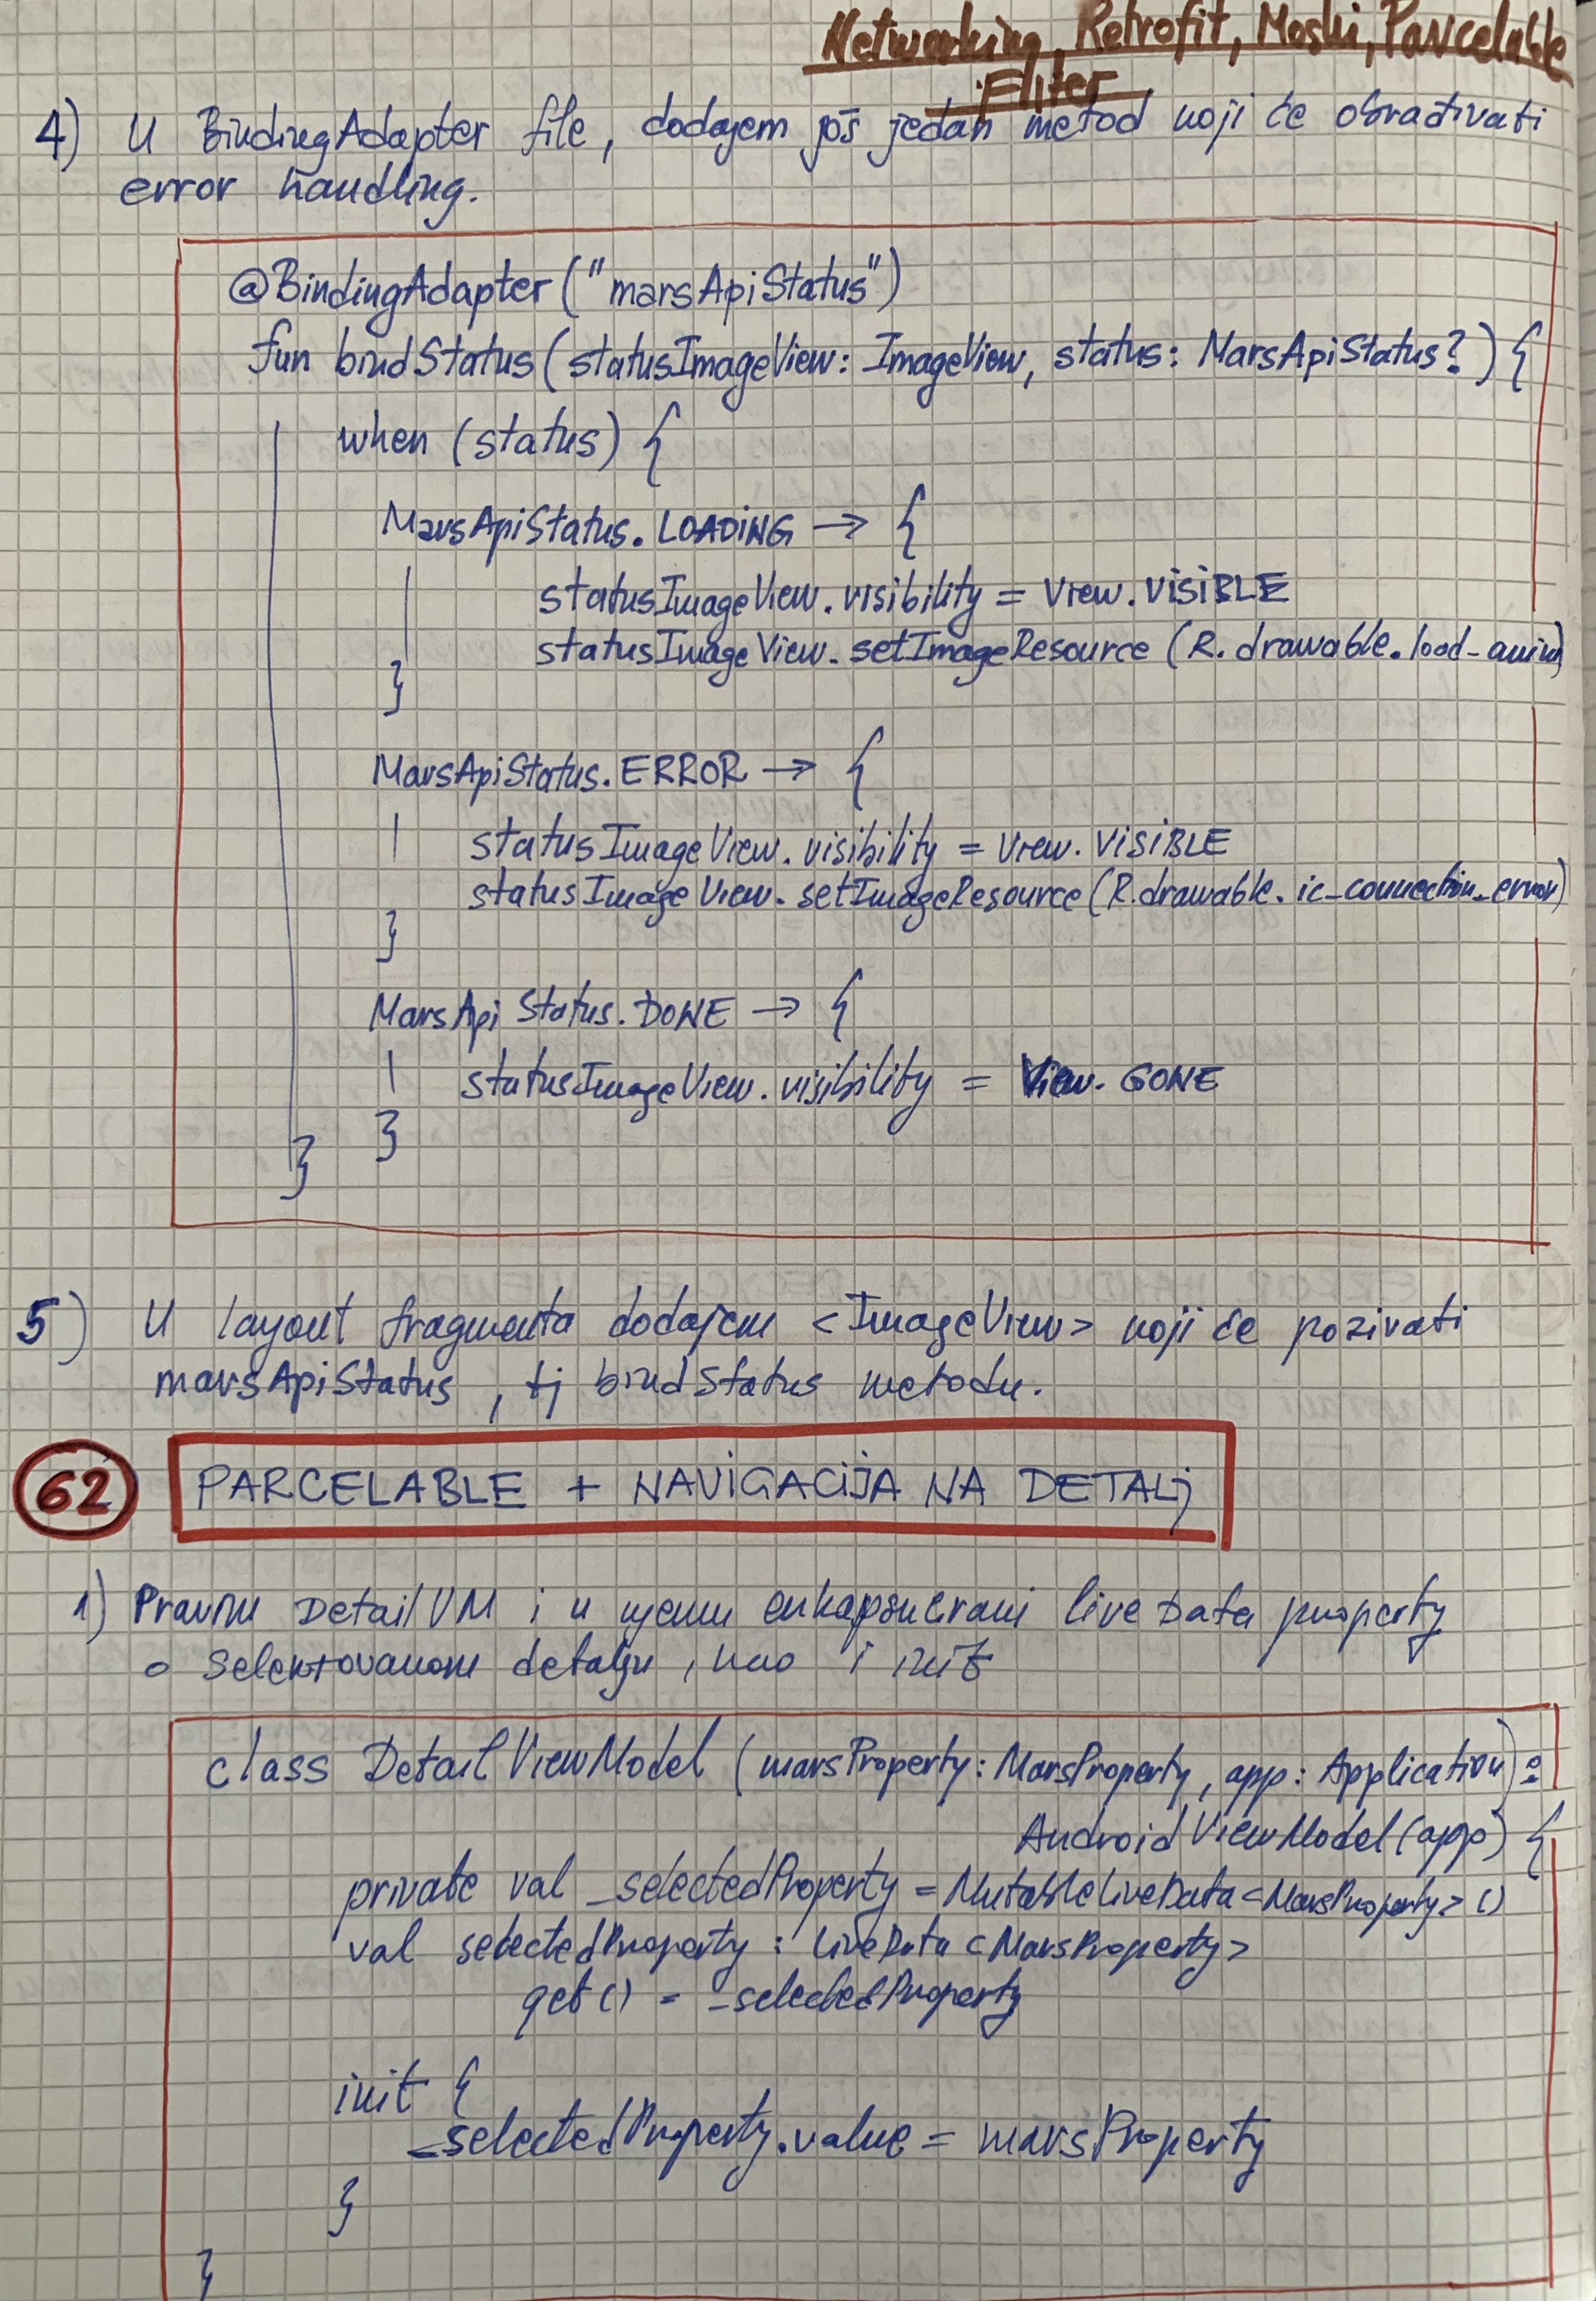 Networking, Retrofit, Moshi, Parcelable
Filter
4) U BindingAdapter file, dodajem još jedan metod koji će obrađivati
error handling.
@BindingAdapter("marsApiStatus")
fun bindStatus(statusImageView: ImageView, status: MarsApiStatus?) {
when (status) {
MarsApiStatus.LOADING → {
statusImageView.visibility = View.VISIBLE
statusImageView.setImageResource (R.drawable.load_anim)
}
MarsApiStatus.ERROR → {
statusImageView.visibility = View.VISIBLE
statusImageView.setImageResource (R.drawable.ic_connection_error)
}
MarsApiStatus.DONE → {
statusImageView.visibility = View.GONE
}
}
5) U layout fragmenta dodajem <ImageView> koji će pozivati
marsApiStatus, tj bindStatus metodu.
62 PARCELABLE + NAVIGACIJA NA DETALj
1) Pravim DetailVM i u njemu enkapsulirani liveData property
o selektovanom detalju, kao i init
class DetailViewModel (marsProperty: MarsProperty, app: Application) :
AndroidViewModel(app) {
private val _selectedProperty = MutableLiveData<MarsProperty>()
val selectedProperty : LiveData<MarsProperty>
get() = _selectedProperty
init {
_selectedProperty.value = marsProperty
}
}